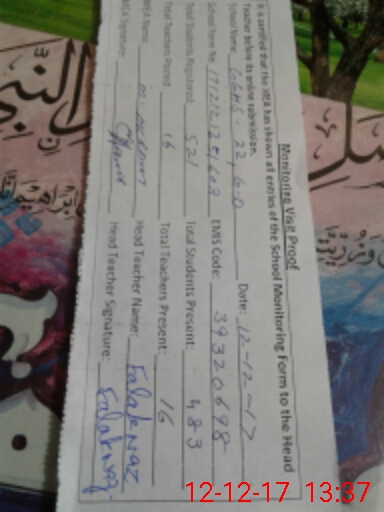 Monitoring Visit Proof
It is certified that the MEA has shown all entries of the School Monitoring Form to the Head
Teacher before its online submission.
Date: 12-12-17
School Name: GGHS 22, G.D
School Form No. EMIS Code: 39320698
Total Students Registered: 521 Total Students Present: 483
Total Teachers Posted: 16 Total Teachers Present: 16
MEA Name Head Teacher Name: Falak Naz
MEA Signature: Head Teacher Signature: Falak Naz
12-12-17 13:37